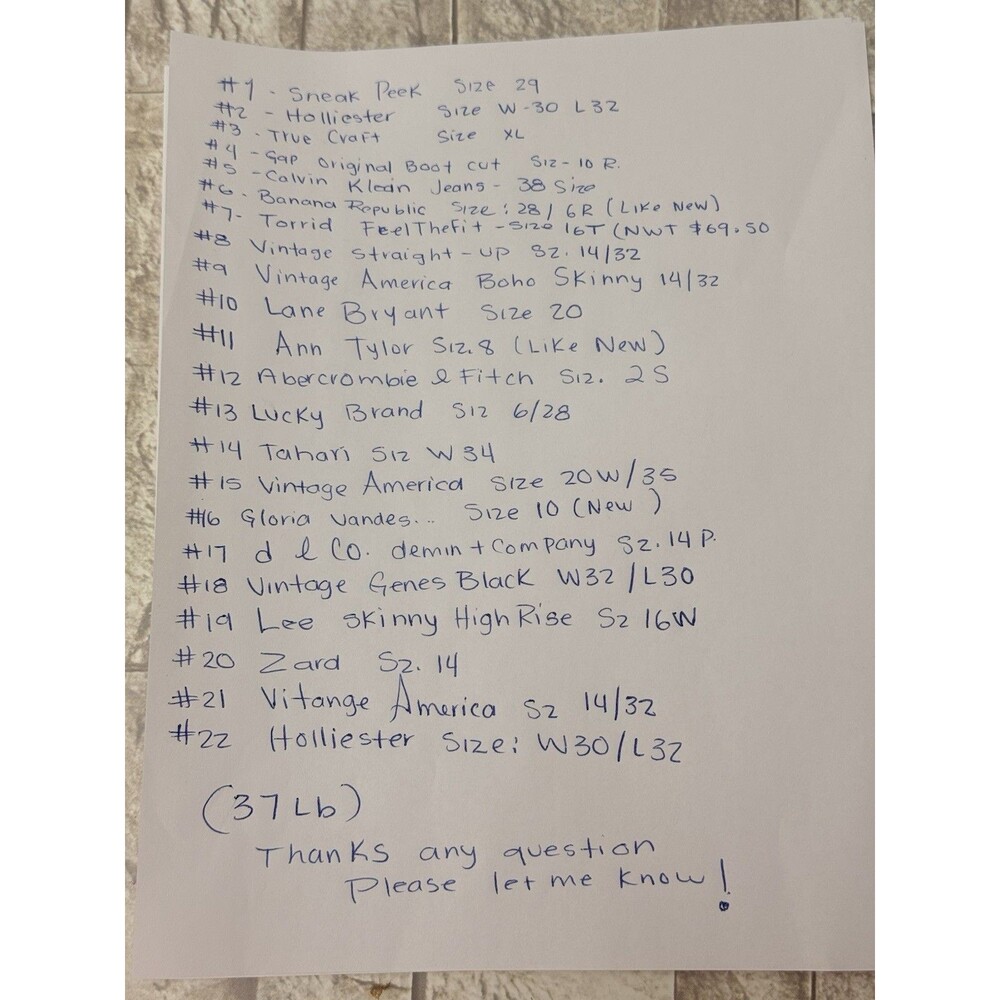 #1 - Sneak Peek Size 29
#2 - Holliester Size W-30 L32
#3 - True Craft Size XL
#4 - Gap Original Boot cut Siz-10 R.
#5 - Calvin Klein Jeans - 38 Size
#6 - Banana Republic Size: 28/6R (Like New)
#7 - Torrid FeelTheFit - Size 16T (NWT $69.50
#8 Vintage Straight-up Sz. 14/32
#9 Vintage America Boho Skinny 14/32
#10 Lane Bryant Size 20
#11 Ann Tylor Siz. 8 (Like New)
#12 Abercrombie & Fitch Siz. 2S
#13 Lucky Brand Siz 6/28
#14 Tahari Siz W34
#15 Vintage America Size 20W/35
#16 Gloria Vandes... Size 10 (New)
#17 d & Co. demin + Company Sz. 14 P.
#18 Vintage Genes Black W32/L30
#19 Lee Skinny High Rise Sz 16W
#20 Zard Sz. 14
#21 Vitange America Sz 14/32
#22 Holliester Size: W30/L32
(37 Lb)
Thanks any question
Please let me know!